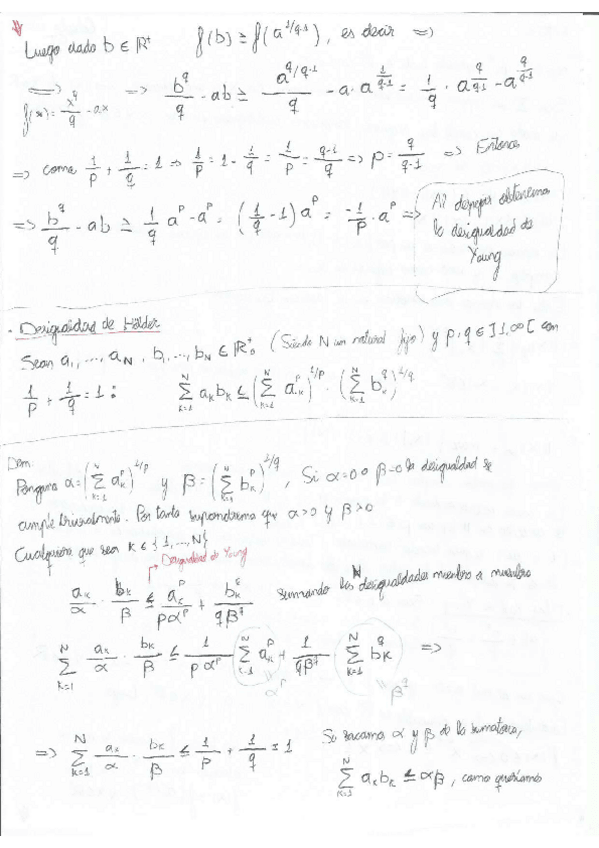 Luego dado b ∈ ℝ⁺ f(b) ≥ f(a^{1/q-1}), es decir ⇒
⇒ ⇒ b^q/q - ab ≥ a^{q/q-1}/q - a·a^{1/q-1} = 1/q · a^{q/q-1} - a^{q/q-1}
f(x) = x^q/q - ax
⇒ como 1/p + 1/q = 1 ⇒ 1/p = 1 - 1/q = 1/p = q-1/q ⇒ p = q/q-1 ⇒ Entonces
⇒ b^q/q - ab ≥ 1/q a^p - a^p = (1/q - 1) a^p = -1/p · a^p ⇒
Al despejar obtenemos
la desigualdad de
Young
· Desigualdad de Hölder
Sean a₁, ..., a_N, b₁, ..., b_N ∈ ℝ₀⁺ (Siendo N un natural fijo) y p, q ∈ ]1, ∞[ con
1/p + 1/q = 1 : ∑_{k=1}^N a_k b_k ≤ (∑_{k=1}^N a_k^p)^{1/p} · (∑_{k=1}^N b_k^q)^{1/q}
Dem:
Pongamos α = (∑_{k=1}^N a_k^p)^{1/p} y β = (∑_{k=1}^N b_k^p)^{1/q}, Si α=0 o β=0 la desigualdad se
cumple trivialmente. Por tanto supondremos que α>0 y β>0
Cualquiera que sea k ∈ {1, ..., N}
Desigualdad de Young
a_k/α · b_k/β ≤ a_k^p/pα^p + b_k^q/qβ^q sumando las N desigualdades miembro a miembro
∑_{k=1}^N a_k/α · b_k/β ≤ 1/pα^p ∑_{k=1}^N a_k^p + 1/qβ^q · ∑_{k=1}^N b_k^q ⇒
= α^p = β^q
⇒ ∑_{k=1}^N a_k/α · b_k/β ≤ 1/p + 1/q = 1 Si sacamos α y β de la sumatoria,
∑_{k=1}^N a_k b_k ≤ αβ, como queríamos